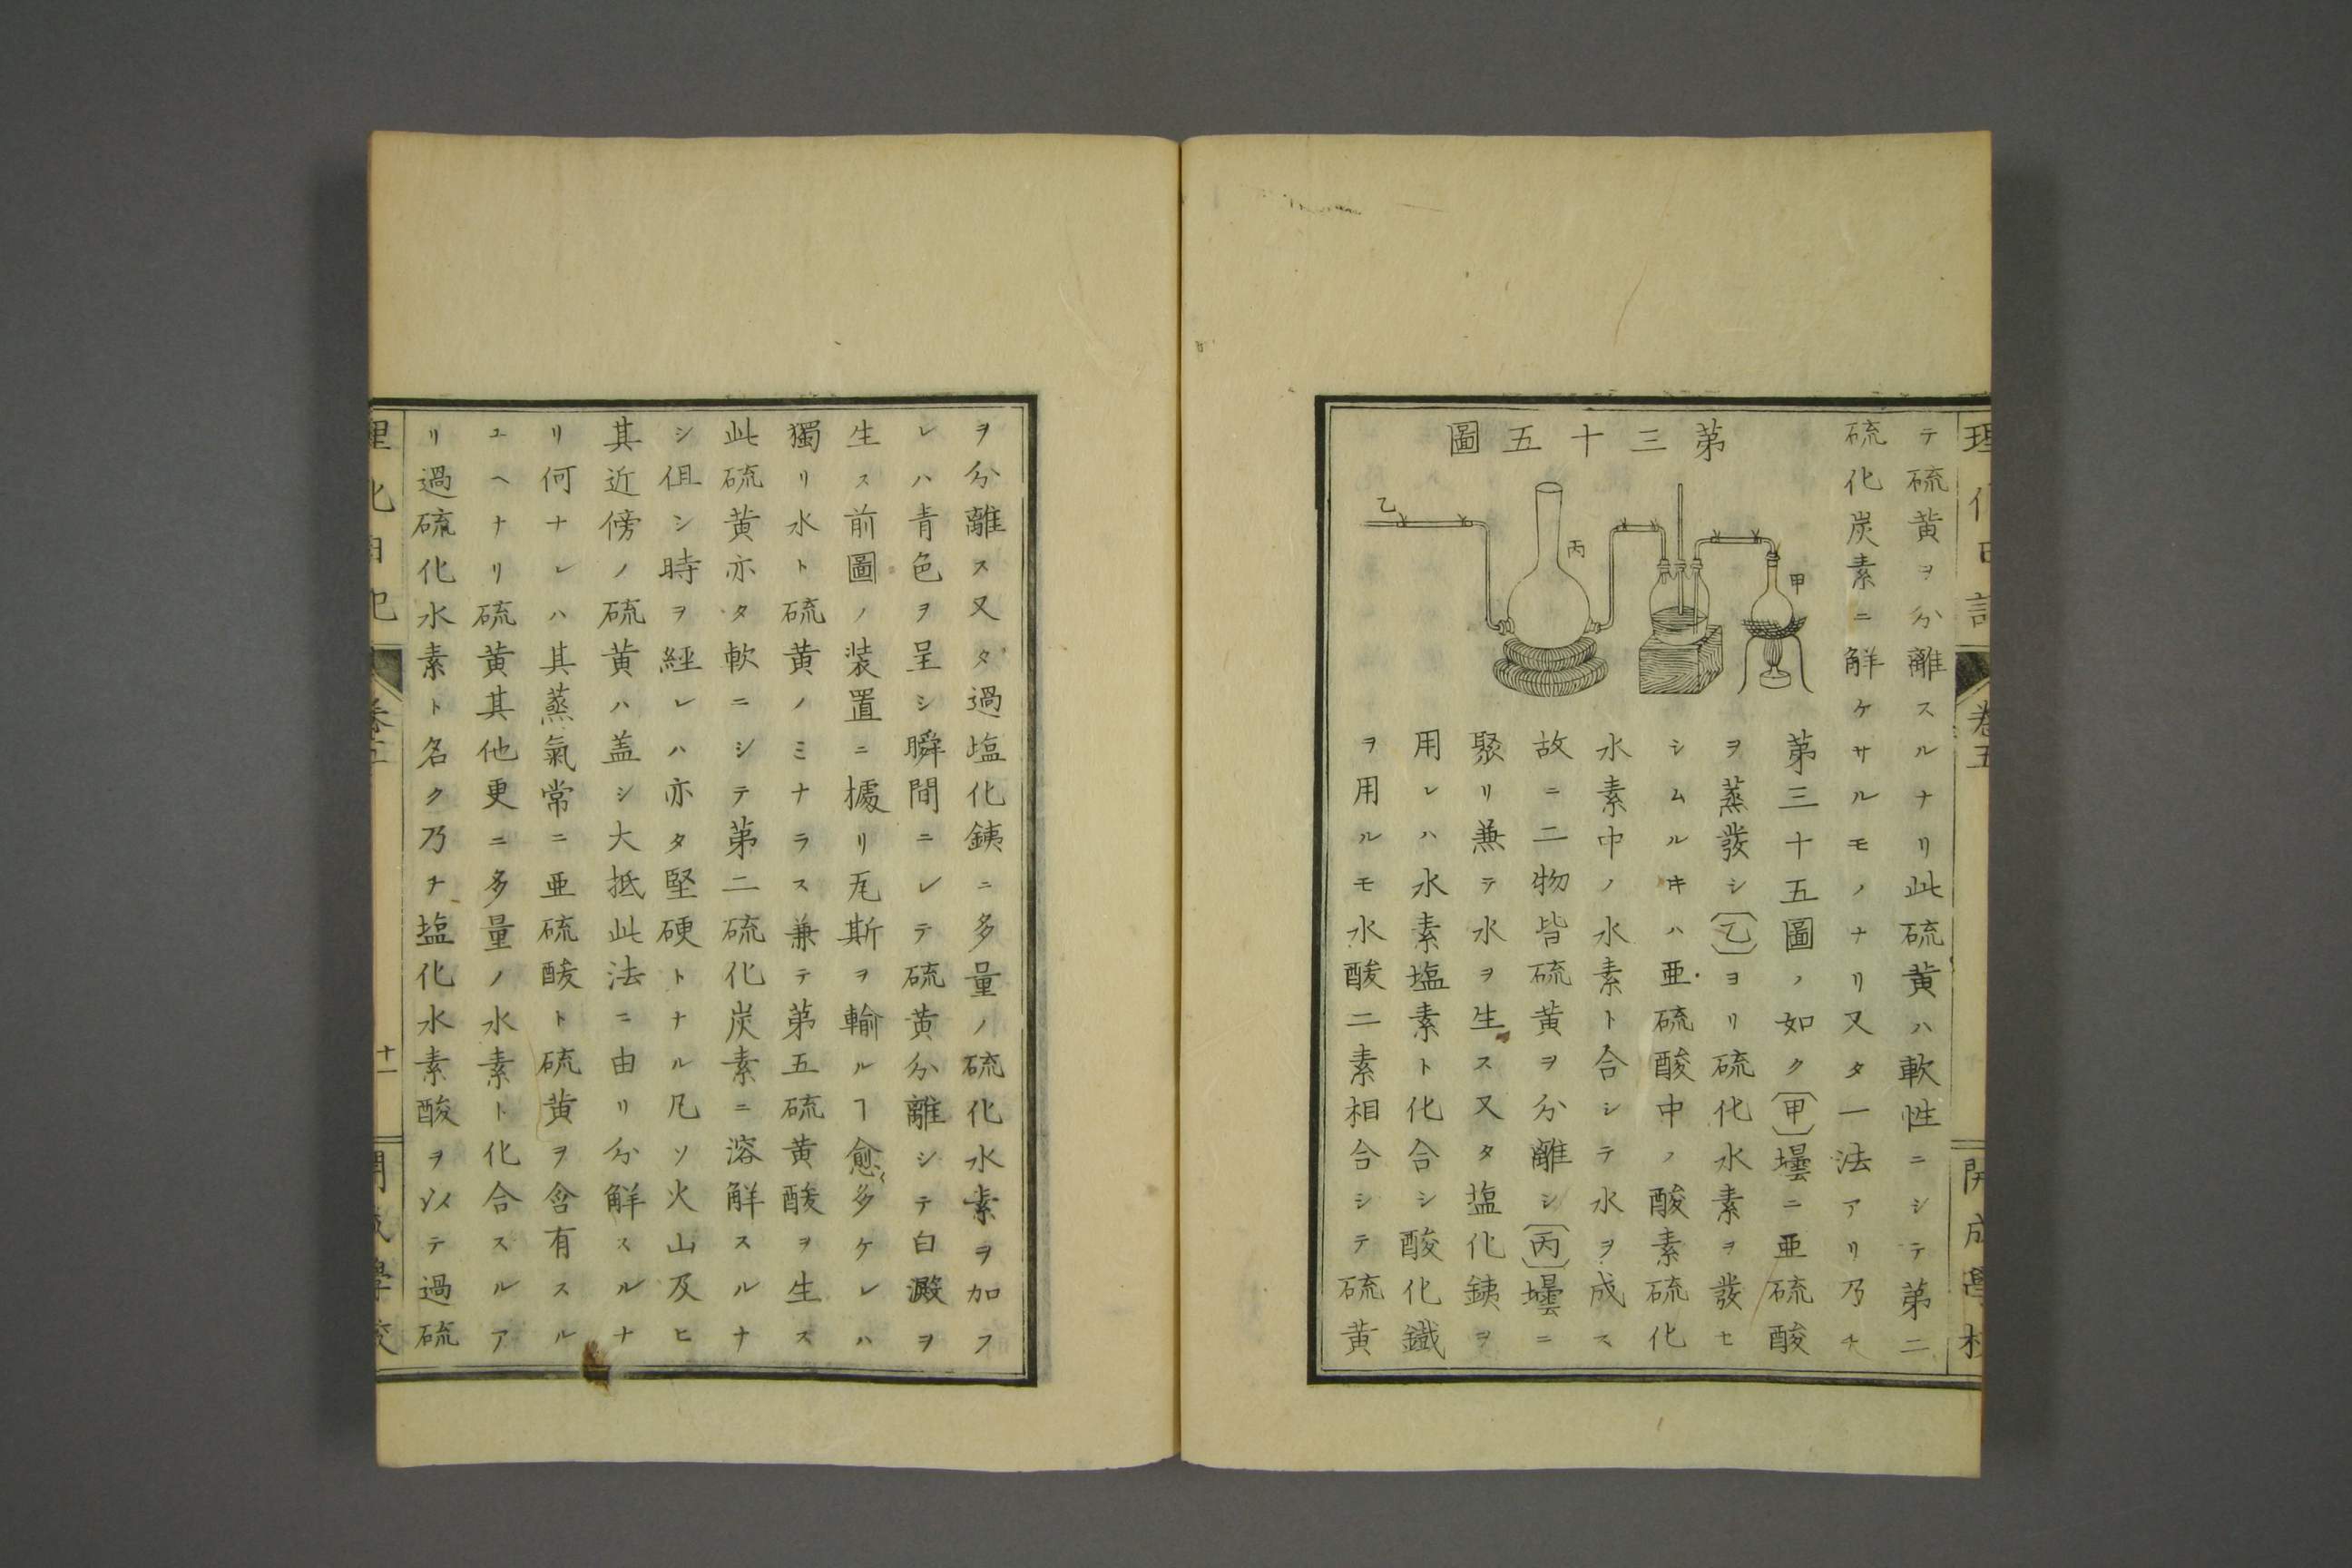 テ硫黄ヲ分離スルナリ此硫黄ハ軟性ニシテ第二
硫化炭素ニ解ケサルモノナリ又タ一法アリ乃チ
第三十五圖
甲
丙
乙
第三十五圖ノ如ク〔甲〕壜ニ亜硫酸
ヲ蒸發シ〔乙〕ヨリ硫化水素ヲ發セ
シムルキハ亜硫酸中ノ酸素硫化
水素中ノ水素ト合シテ水ヲ成ス
故ニ二物皆硫黄ヲ分離シ〔丙〕壜ニ
聚リ兼テ水ヲ生ス又タ塩化銕ヲ
用レハ水素塩素ト化合シ酸化鐵
ヲ用ルモ水酸二素相合シテ硫黄
理化日記
卷五
開成學校
ヲ分離ス又タ過塩化銕ニ多量ノ硫化水素ヲ加フ
レハ青色ヲ呈シ瞬間ニレテ硫黄分離シテ白澱ヲ
生ス前圖ノ装置ニ據リ瓦斯ヲ輸ルヿ愈〻多ケレハ
獨リ水ト硫黄ノミナラス兼テ第五硫黄酸ヲ生ス
此硫黄亦タ軟ニシテ第二硫化炭素ニ溶解スルナ
シ伹シ時ヲ經レハ亦タ堅硬トナル凡ソ火山及ヒ
其近傍ノ硫黄ハ盖シ大抵此法ニ由リ分解スルナ
リ何ナレハ其蒸氣常ニ亜硫酸ト硫黄ヲ含有スル
ユヘナリ硫黄其他更ニ多量ノ水素ト化合スルア
リ過硫化水素ト名ク乃チ塩化水素酸ヲ以テ過硫
理化日記
卷五
十一
開成學校